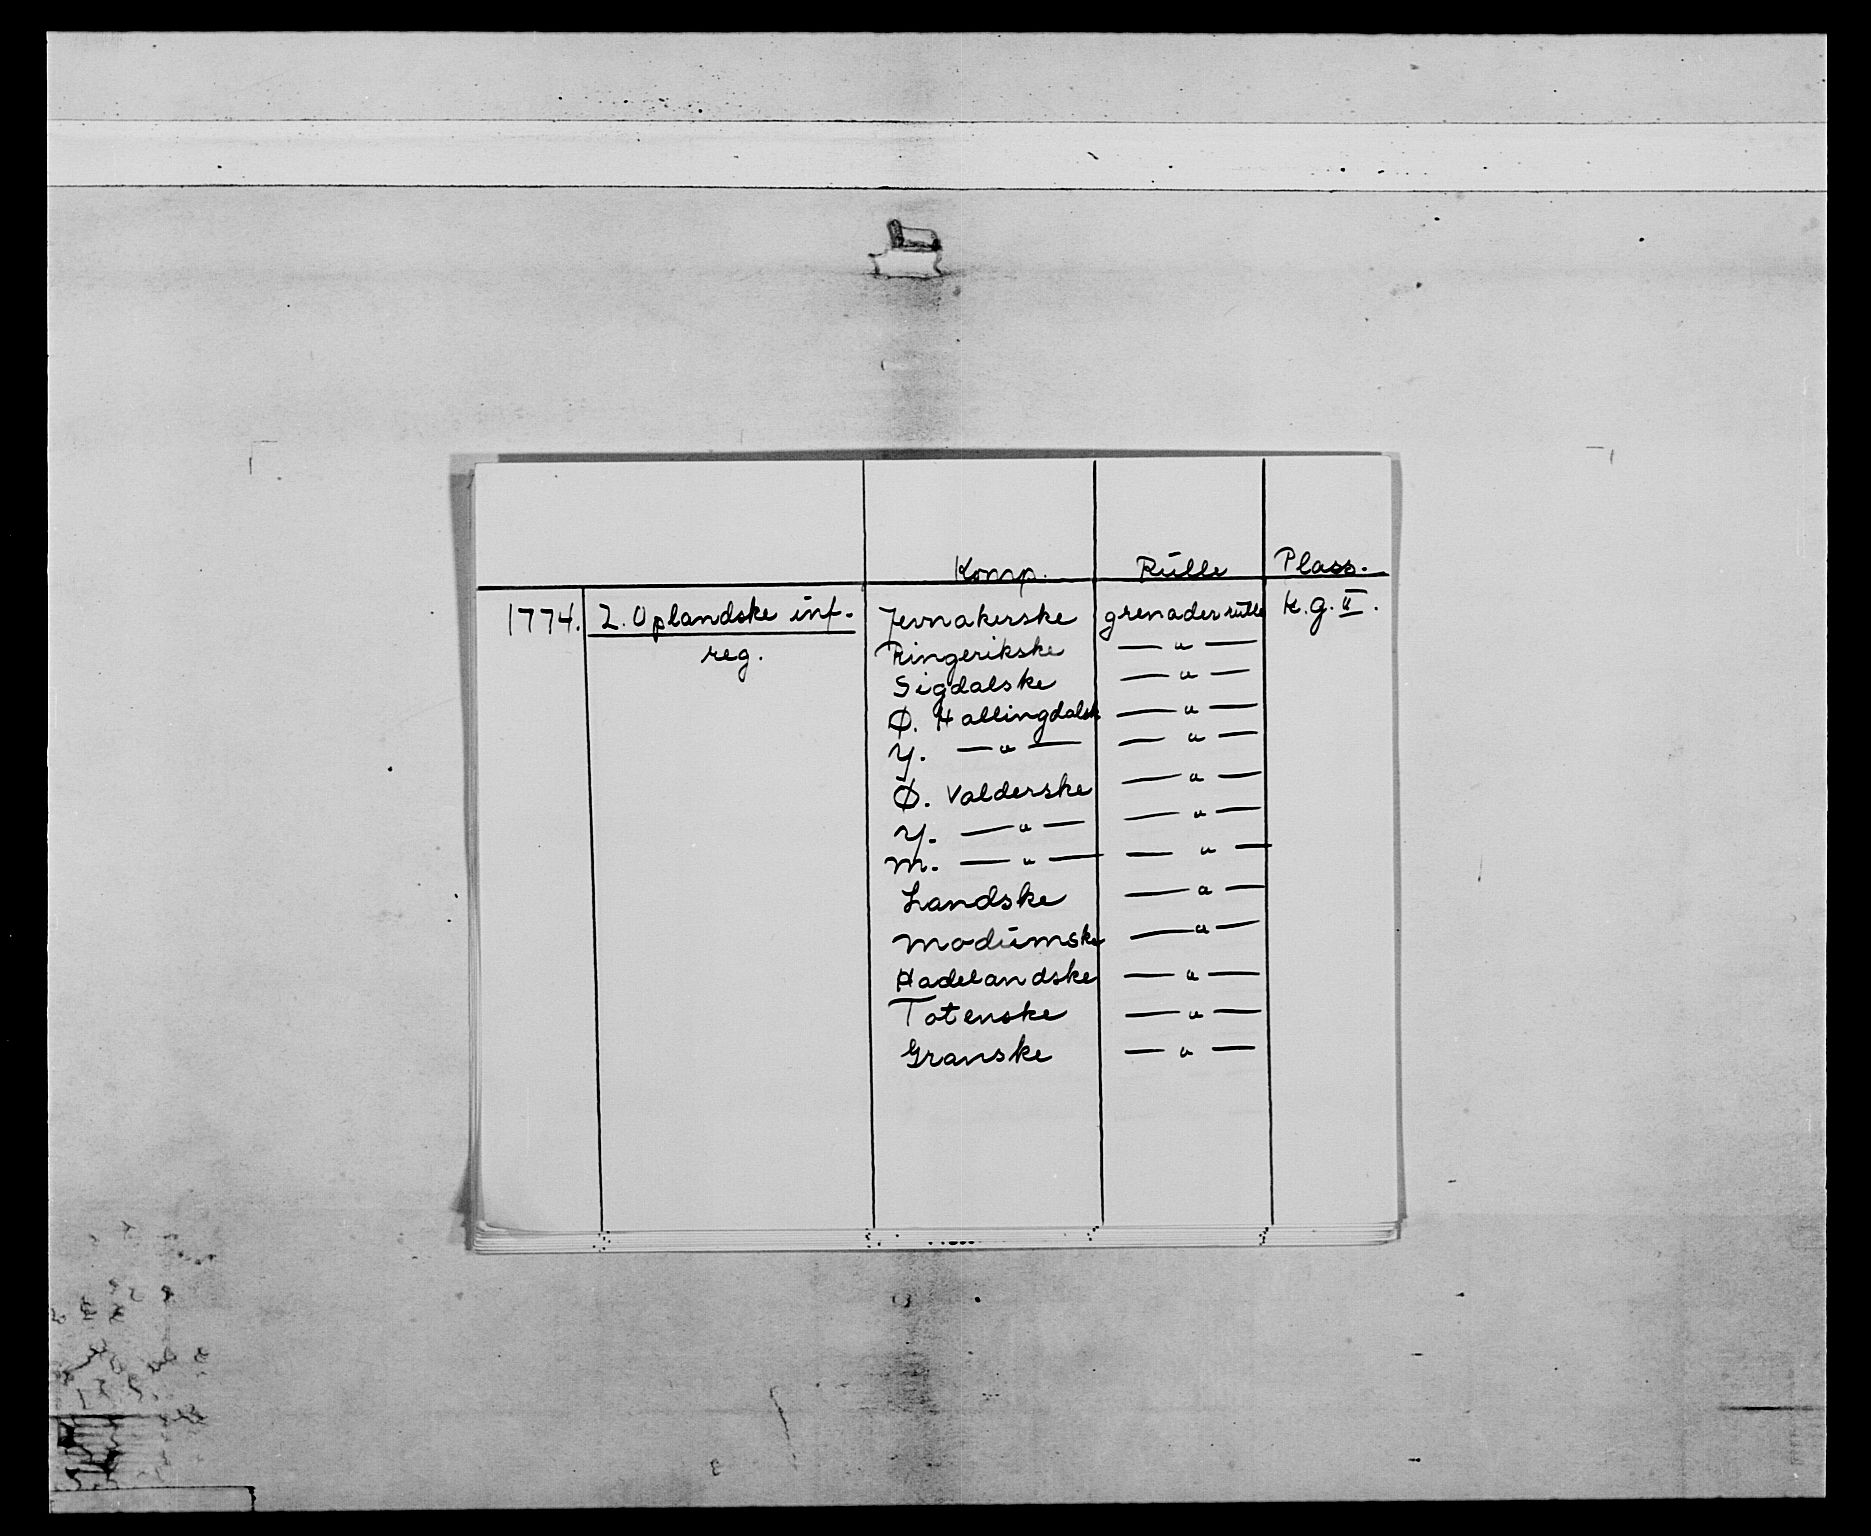 Komp. Rulle Plass.
1774. 2. Oplandske inf. Jevnakerske grenader rulle K.g. II.
reg. Ringerikske — " —
Sigdalske — " —
Ø. Hallingdalsk — " —
Y. — " — — " —
Ø. Valderske — " —
Y. — " — — " —
M. — " — — " —
Landske — " —
Modumske — " —
Hadelandske — " —
Totenske — " —
Granske — " —